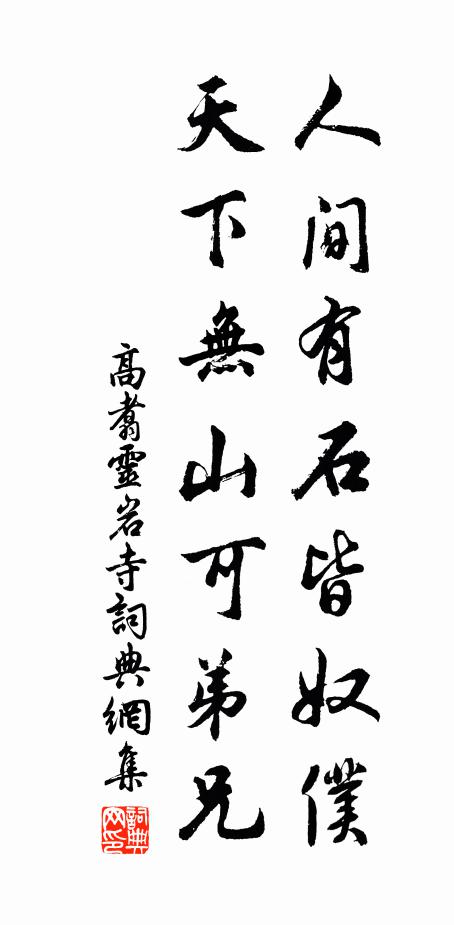 人間有石皆奴僕
天下無山可弟兄
高翥靈岩寺詞典網集
詞典网印